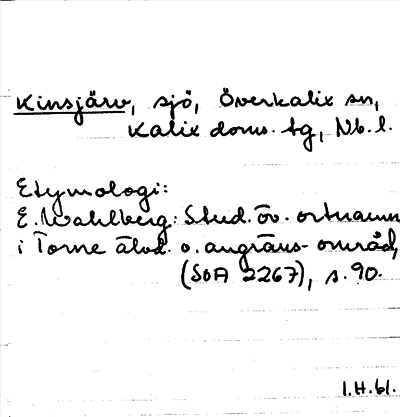 Kinsjärv, sjö, Överkalix sn,
Kalix doms. tg, Nb. l.
Etymologi:
E. Wahlberg: Stud. öv. ortnamn
i Torne älvd. o. angräns. områd,
(SOA 2267), s. 90.
I.H. 61.